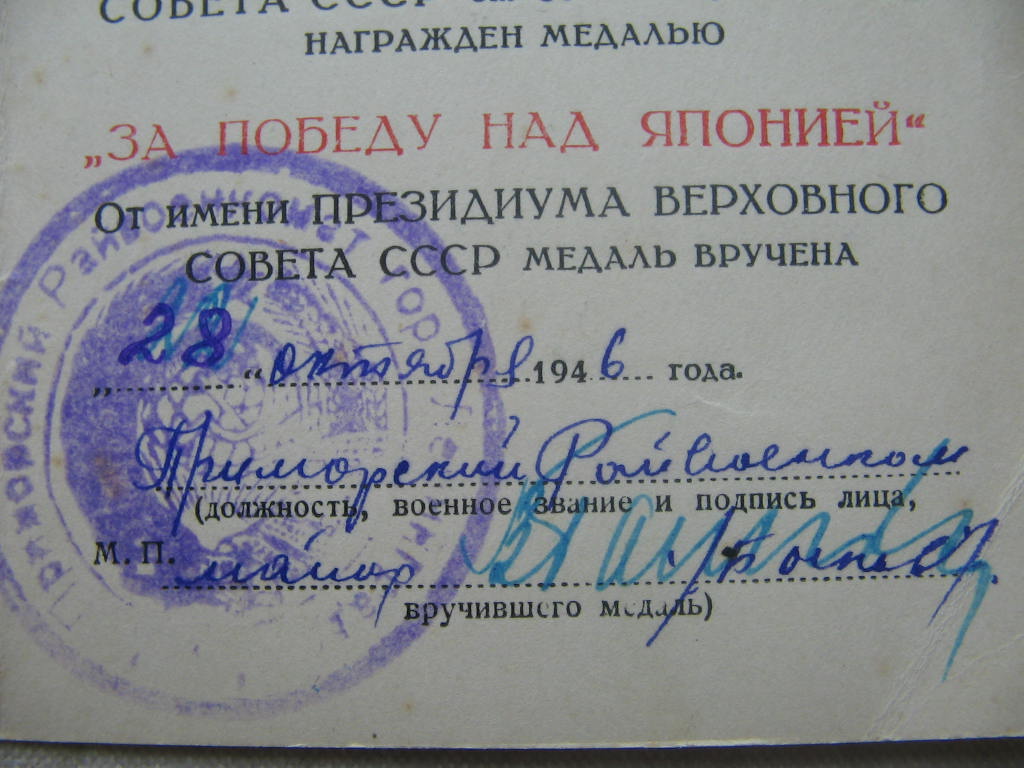 СОВЕТА СССР
НАГРАЖДЕН МЕДАЛЬЮ
„ЗА ПОБЕДУ НАД ЯПОНИЕЙ“
От имени ПРЕЗИДИУМА ВЕРХОВНОГО
СОВЕТА СССР МЕДАЛЬ ВРУЧЕНА
„28“ октября 1946 года.
Приморский Райвоенком
(должность, военное звание и подпись лица,
М. П. майор
вручившего медаль)
Приморский Райвоенкомат